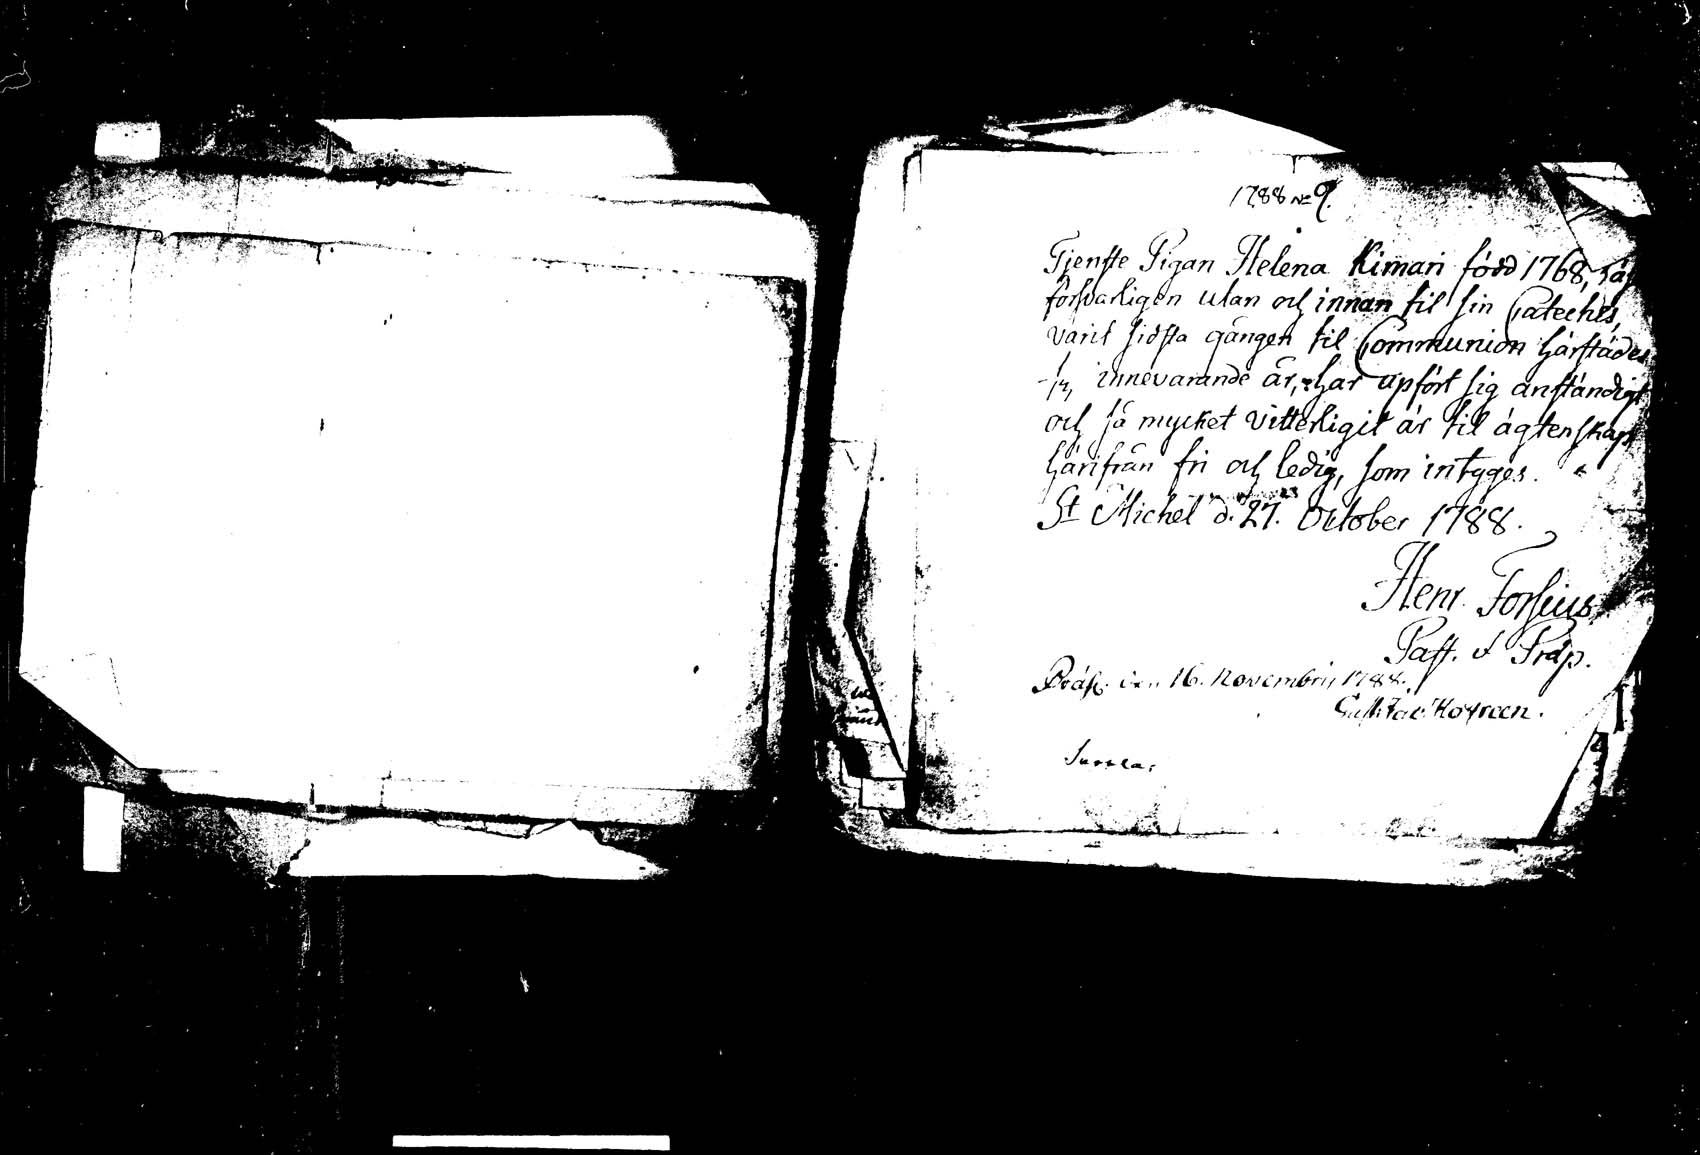 1788 No 9.
Tjenste Pigan Helena Kimari född 1768, läs
försvarligen utan och innan til sin Catechis,
varit sidsta gången til Communion härstädes
innevarande år, har upfört sig anständigt
och så mycket vitterligit är til ägtenskap
härifrån fri och ledig, som intyges.
St Michel d. 27. October 1788.
Henr. Forsius.
Past. & Präp.
den 16. Novembris 1788.
Gustav